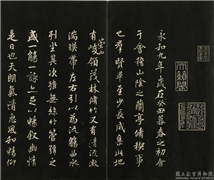 永和九年歲在癸丑暮春之初會
于會稽山陰之蘭亭脩稧事
也羣賢畢至少長咸集此地
崇山
有峻領茂林脩竹又有清流激
湍暎帶左右引以為流觴曲水
列坐其次雖無絲竹管弦之
盛一觴一詠亦足以暢敘幽情
是日也天朗氣清惠風和暢仰